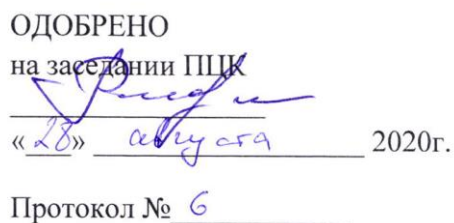 ОДОБРЕНО
на заседании ПЦК
«28» августа 2020г.
Протокол № 6